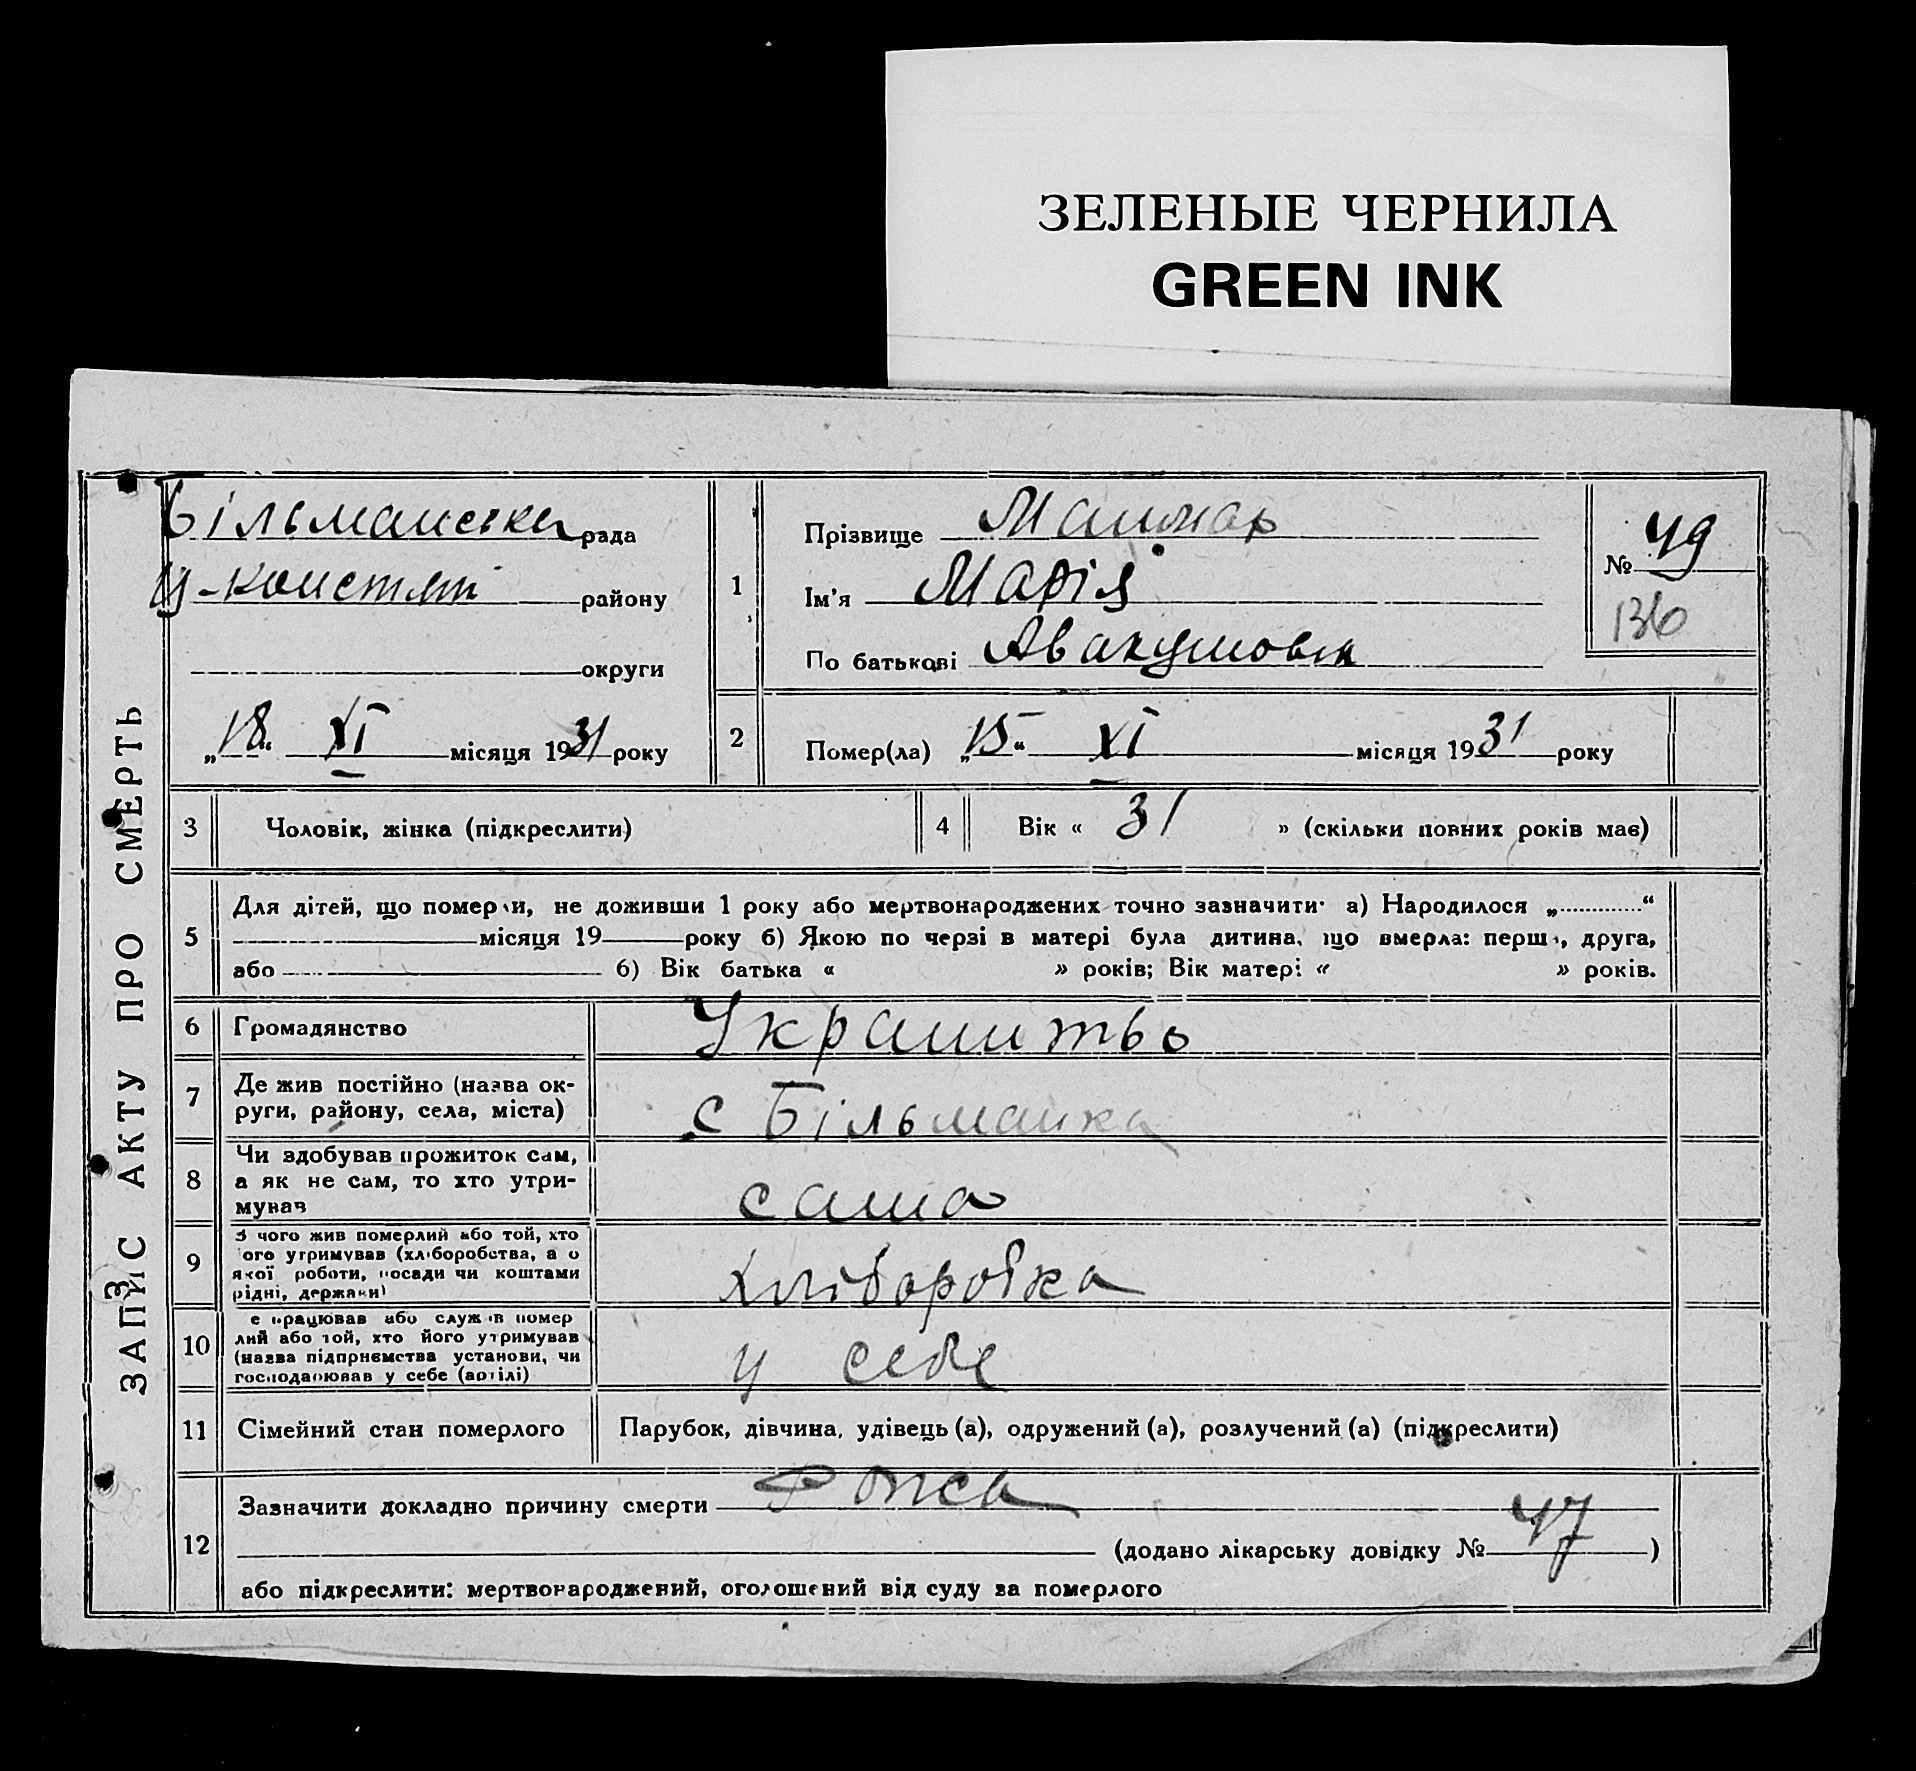 ЗЕЛЕНЫЕ ЧЕРНИЛА
GREEN INK
ЗАПИС АКТУ ПРО СМЕРТЬ
З
Більманська рада
району
округи
„18“ XI місяця 1931 року
1
Прізвище
Ім'я Марія
По батькові Авакумовна
№ 49
136
2
Помер(ла) „15“ XI місяця 1931 року
3 Чоловік, жінка (підкреслити)
4 Вік « 31 » (скільки повних років має)
5
Для дітей, що померли, не доживши 1 року або мертвонароджених точно зазначити: а) Народилося „ “
місяця 19 року б) Якою по черзі в матері була дитина, що вмерла: перша, друга,
або б) Вік батька « » років; Вік матері « » років.
6 Громадянство
7 Де жив постійно (назва ок-
руги, району, села, міста)
с Більманка
8 Чи здобував прожиток сам,
а як не сам, то хто утри-
мував
сама
9 З чого жив померлий або той, хто
ого утримував (хліборобства, а о
якої роботи, посади чи коштами
рідні, держави)
хліборобка
10 е працював або служив помер
лий або той, хто його утримував
(назва підприємства установи, чи
господарював у себе (артілі)
у себе
11 Сімейний стан померлого
Парубок, дівчина, удівець (а), одружений (а), розлучений (а) (підкреслити)
12
Зазначити докладно причину смерти Рожа
(додано лікарську довідку № 47 )
або підкреслити: мертвонароджений, оголошений від суду за померлого